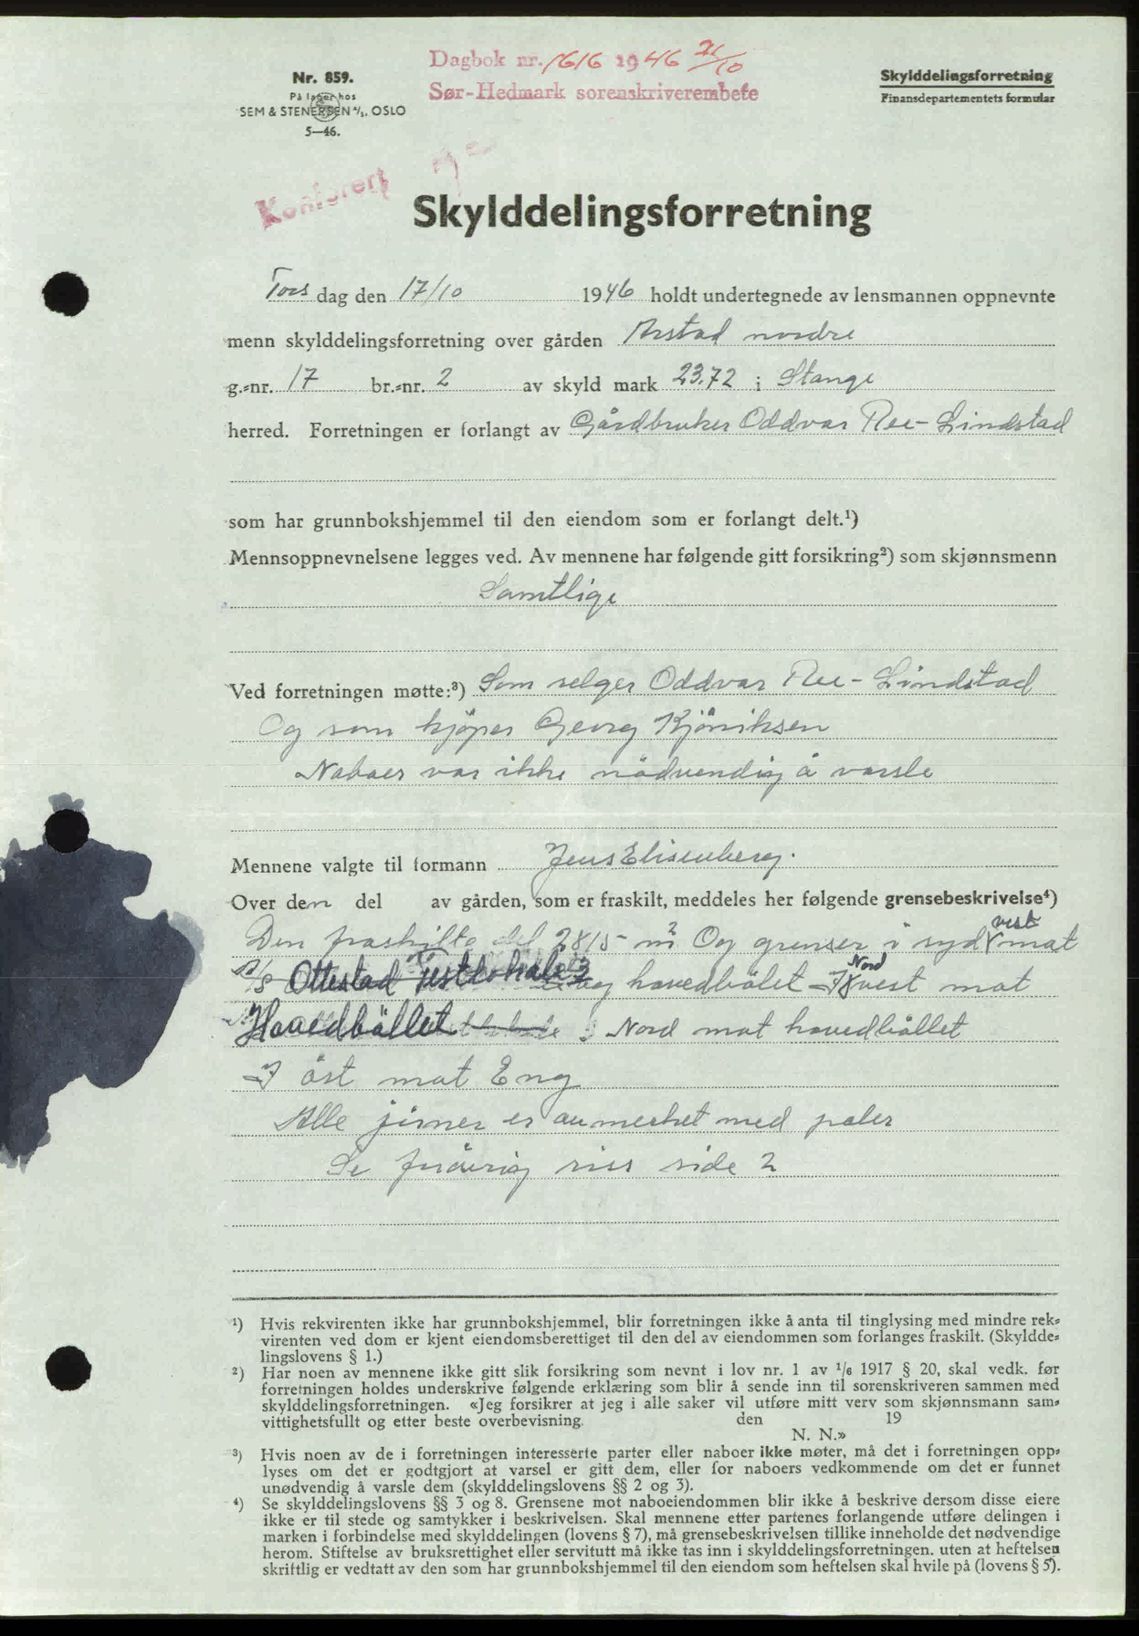 Dagbok nr. 1616 1946 21/10
Sør-Hedmark sorenskriverembete
Nr. 859.
På lager hos
SEM & STENERSEN A/S. OSLO
5—46.
Skylddelingsforretning
Finansdepartementets formular
Konferert
Skylddelingsforretning
Tors dag den 17/10 1946 holdt undertegnede av lensmannen oppnevnte
menn skylddelingsforretning over gården Arstad nordre
g.-nr. 17 br.-nr. 2 av skyld mark 23.72 i Stange
herred. Forretningen er forlangt av Gårdbruker Oddvar Ree-Lindstad
som har grunnbokshjemmel til den eiendom som er forlangt delt.¹)
Mennsoppnevnelsene legges ved. Av mennene har følgende gitt forsikring²) som skjønnsmenn
Samtlige
Ved forretningen møtte:³) Som selger Oddvar Ree-Lindstad
Og som kjøper Georg Kjöniksen
Naboer var ikke nödvendig å varsle
Mennene valgte til formann Jens Elisenberg.
Over den del av gården, som er fraskilt, meddeles her følgende grensebeskrivelse⁴)
Den fraskilte del 2815 m² Og grenser i syd vest mat
A/S Ottestad Festlokale og hovedbölet I Nord vest mat
Hovedböllet I Nord mat hovedböllet
I öst mat Eng
Alle jörner er anmerket med pæler
Se riss side 2
¹) Hvis rekvirenten ikke har grunnbokshjemmel, blir forretningen ikke å anta til tinglysing med mindre rek-
virenten ved dom er kjent eiendomsberettiget til den del av eiendommen som forlanges fraskilt. (Skyldde-
lingslovens § 1.)
²) Har noen av mennene ikke gitt slik forsikring som nevnt i lov nr. 1 av 1/6 1917 § 20, skal vedk. før
forretningen holdes underskrive følgende erklæring som blir å sende inn til sorenskriveren sammen med
skylddelingsforretningen. «Jeg forsikrer at jeg i alle saker vil utføre mitt verv som skjønnsmann sam-
vittighetsfullt og etter beste overbevisning. den 19
N. N.»
³) Hvis noen av de i forretningen interesserte parter eller naboer ikke møter, må det i forretningen opp-
lyses om det er godtgjort at varsel er gitt dem, eller for naboers vedkommende om det er funnet
unødvendig å varsle dem (skylddelingslovens §§ 2 og 3).
⁴) Se skylddelingslovens §§ 3 og 8. Grensene mot naboeiendommen blir ikke å beskrive dersom disse eiere
ikke er til stede og samtykker i beskrivelsen. Skal mennene etter partenes forlangende utføre delingen i
marken i forbindelse med skylddelingen (lovens § 7), må grensebeskrivelsen tillike inneholde det nødvendige
herom. Stiftelse av bruksrettighet eller servitutt må ikke tas inn i skylddelingsforretningen, uten at heftelsen
skriftlig er vedtatt av den som har grunnbokshjemmel til den eiendom som heftelsen skal hvile på (lovens § 5).